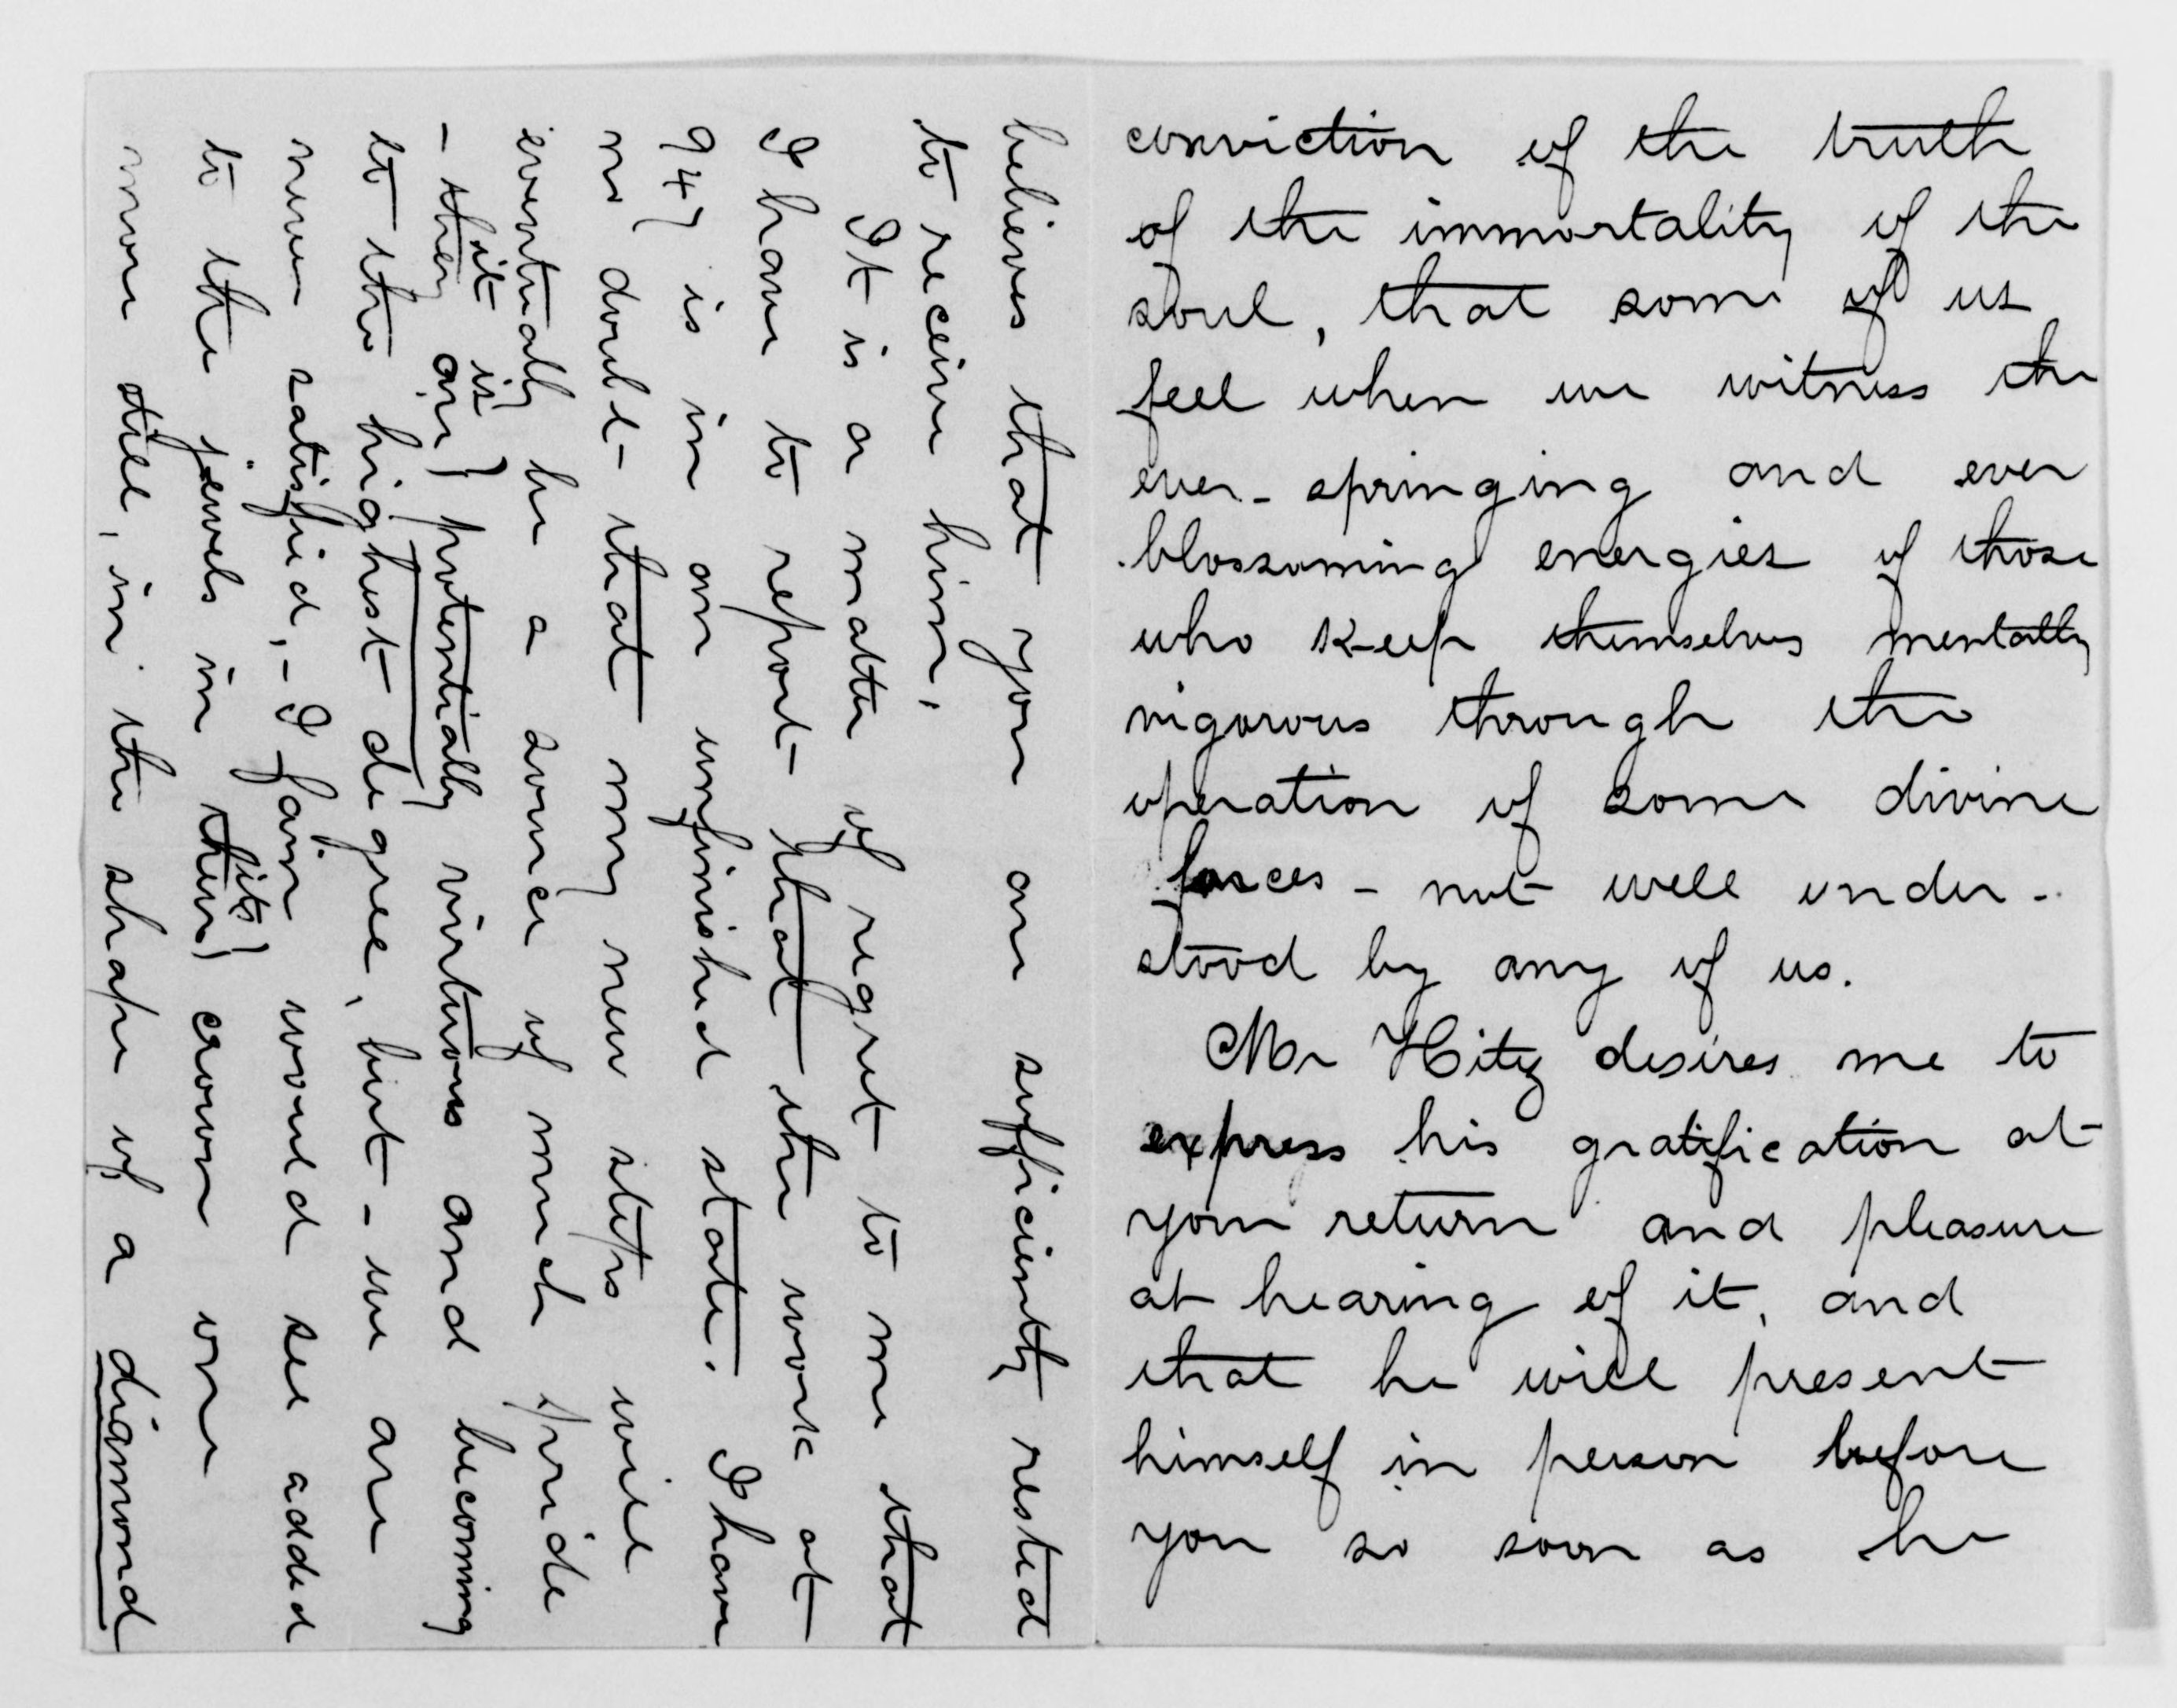 conviction of the truth
of the immortality of the
soul, that some of us
feel when we witness the
ever-springing and ever
blossoming energies of those
who keep themselves mentally
vigorous through the
operation of some divine
forces - not well under-
stood by any of us.
Mr Hitz desires me to
express his gratification at
your return and pleasure
at hearing of it, and
that he will present
himself in person before
you so soon as he
believes that you are sufficiently rested
to receive him.
It is a matter of regret to me that
I have to report that the work at
947 is in an unfinished state. I have
no doubt that my new steps will
eventually be a source of much pride
(it is)
- they are potentially virtuous and becoming
to the highest degree, but - we are
never satisfied, - I fain would see added
(its)
to the jewels in their crown one
more still, in the shape of a diamond